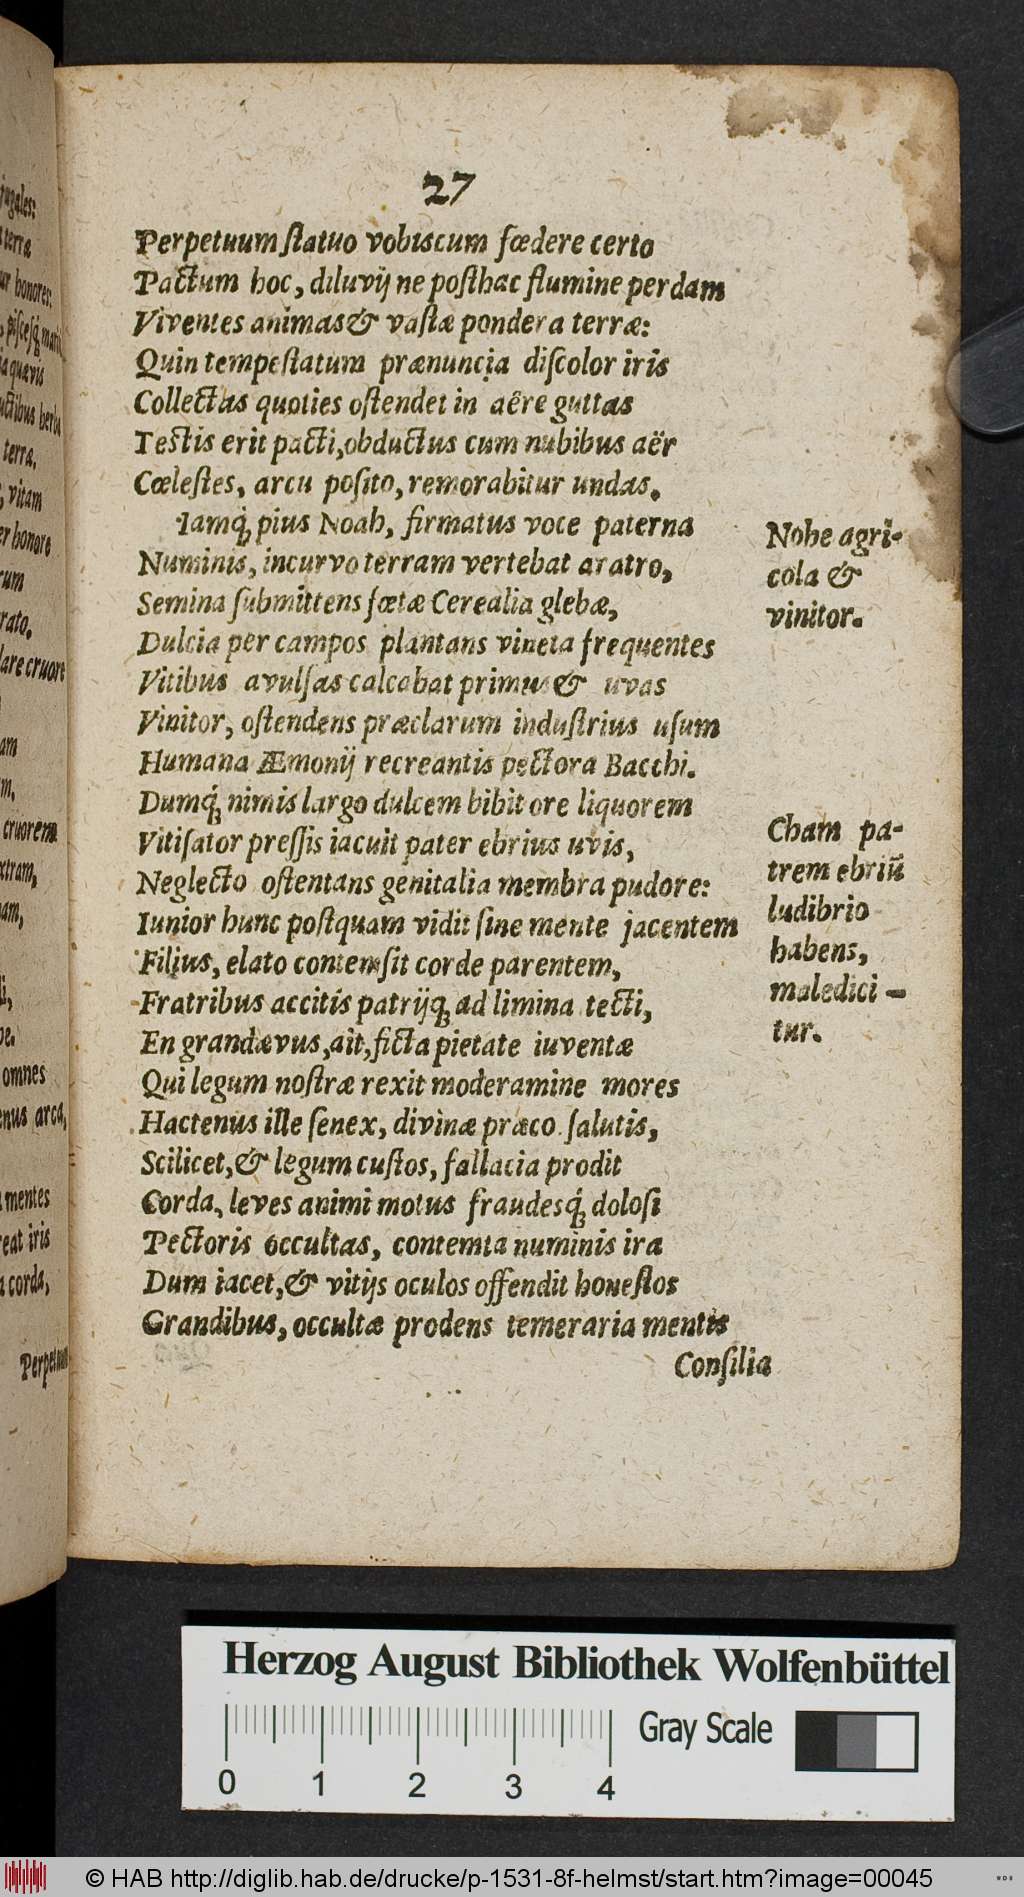 27
Perpetuum ſtatuo vobiscum fœdere certo
Pactum hoc, diluvij ne poſthac flumine perdam
Viventes animas & vaſtæ pondera terræ:
Quin tempeſtatum prænuncia diſcolor iris
Collectas quoties oſtendet in aëre guttas
Testis erit pacti, obductus cum nubibus aër
Cœleſtes, arcu poſito, remorabitur undas.
Iamq́; pius Noah, firmatus voce paterna
Numinis, incurvo terram vertebat aratro,
Semina ſubmittens fœtæ Cerealia glebæ,
Dulcia per campos plantans vineta frequentes
Vitibus avulſas calcabat primus & uvas
Vinitor, oſtendens præclarum induſtrius uſum
Humana Æmonij recreantis pectora Bacchi.
Dumq́; nimis largo dulcem bibit ore liquorem
Vitiſator preſſis iacuit pater ebrius uvis,
Neglecto oſtentans genitalia membra pudore:
Iunior hunc poſtquam vidit ſine mente jacentem
Filius, elato contemſit corde parentem,
Fratribus accitis patrijq; ad limina tecti,
En grandævus, ait, ficta pietate iuventæ
Qui legum noſtræ rexit moderamine mores
Hactenus ille ſenex, divinæ præco ſalutis,
Scilicet, & legum cuſtos, fallacia prodit
Corda, leves animi motus fraudesq́; doloſi
Pectoris occultas, contemta numinis ira
Dum iacet, & vitijs oculos offendit honeſtos
Grandibus, occultæ prodens temeraria mentis
Conſilia
Nohe agri-
cola &
vinitor.
Cham pa-
trem ebriū
ludibrio
habens,
maledici-
tur.
jugales:
terræ
honores:
piſceſq́;
quævis
terra.
vitam
honore
cruore
cruorem
omnes
arca,
mentes
iris
corda,
Herzog August Bibliothek Wolfenbüttel
0 1 2 3 4
Gray Scale
© HAB http://diglib.hab.de/drucke/p-1531-8f-helmst/start.htm?image=00045